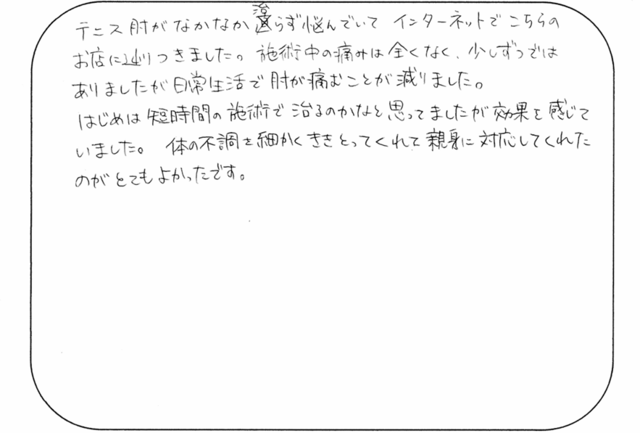 テニス肘がなかなか治らず悩んでいて インターネットでこちらの
お店に辿りつきました。施術中の痛みは全くなく、少しずつでは
ありましたが日常生活で肘が痛むことが減りました。
はじめは短時間の施術で治るのかなと思ってましたが効果を感じて
いました。 体の不調を細かくききとってくれて親身に対応してくれた
のがとてもよかったです。